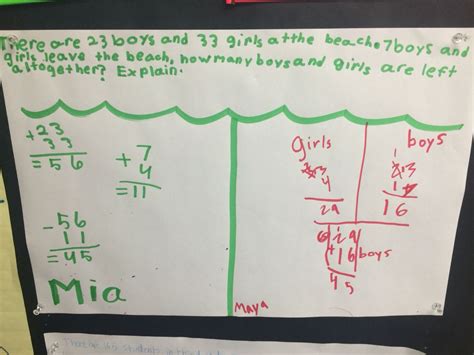 There are 23 boys and 33 girls at the beach. 7 boys and
girls leave the beach, how many boys and girls are left
altogether? Explain.
+23
33
=56
+7
4
=11
-56
11
=45
Mia
Maya
girls
boys
4
29
16
29
+16 boys
45